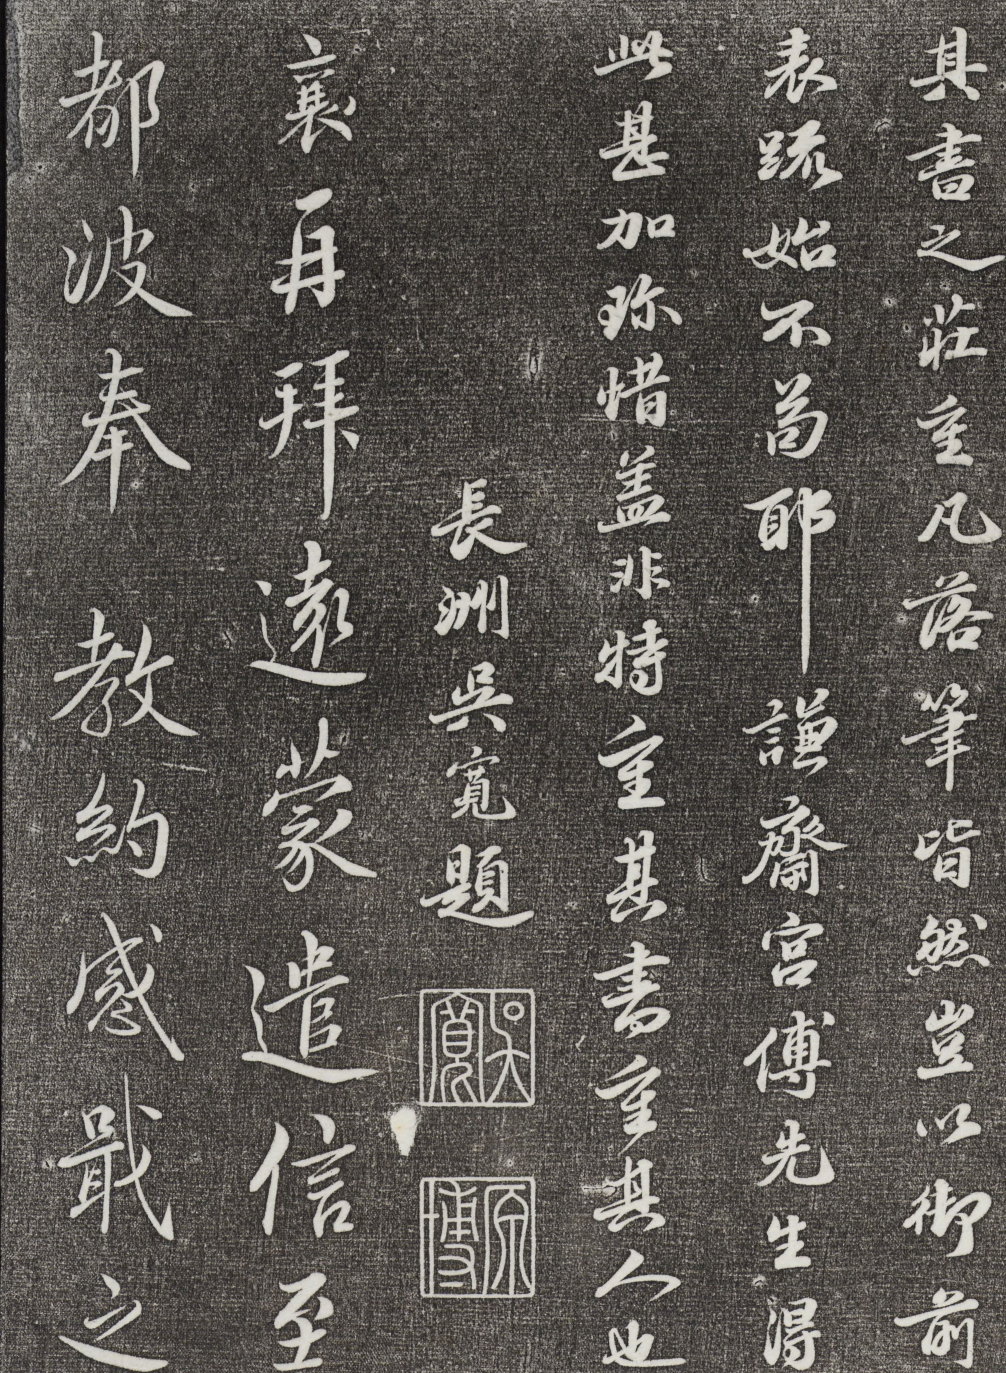 其書之莊重凡落筆皆然豈以御前
表疏始不苟耶謙齋宮傅先生得
此甚加珎惜盖非特重其書重其人也
長洲吳寬題
吳寬
原博
襄再拜遠蒙遣信至
都波奉教約感戢之